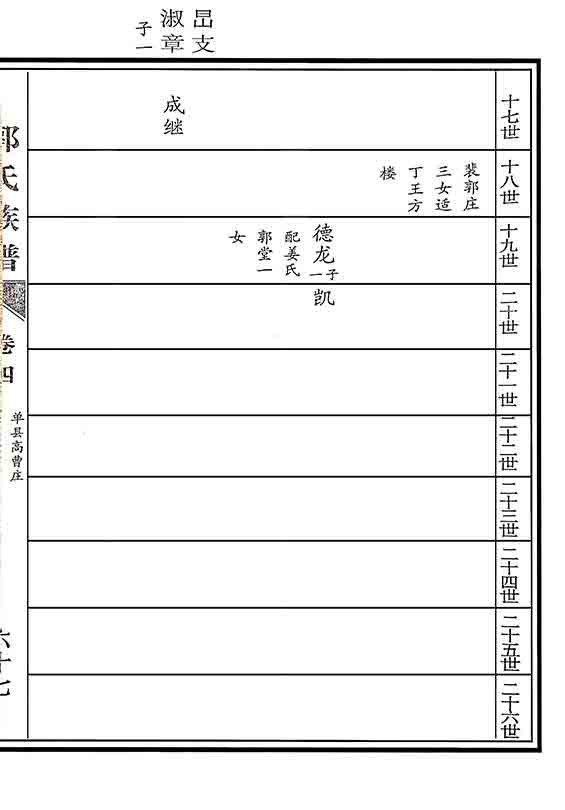 旵支
淑章
子一
十七世
成继
十八世
裴郭庄
三女适
丁王方
楼
十九世
德龙
子一
配姜氏
郭堂一
女
二十世
凯
二十一世
二十二世
二十三世
二十四世
二十五世
二十六世
郭氏族谱
卷四
单县高曹庄
六十七